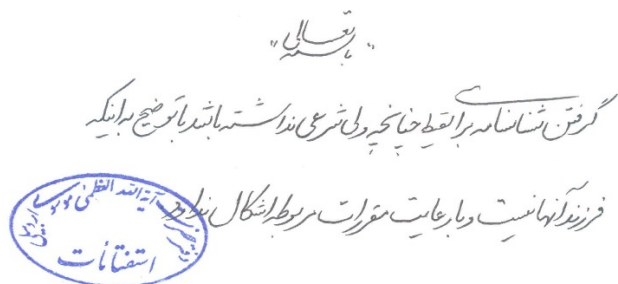 "باسمه تعالی"
گرفتن شناسنامه برای لقیط چنانچه ولی شرعی نداشته باشد با توضیح به اینکه
فرزند آنها نیست و با رعایت مقررات مربوطه اشکال ندارد
دفتر حضرت آیة الله العظمی موسوی اردبیلی
استفتائات